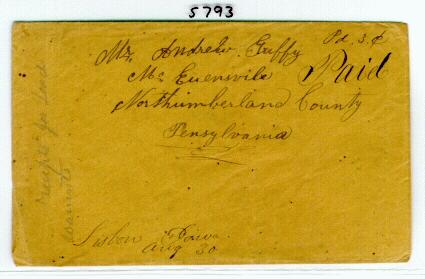 5793
Pd. 3¢
Mr. Andrew Guffy
Paid
Mc Euensvile
Northumberland County
Pensylvania
Lisbon Iowa
Aug 30
Receipts for Land
Warrants